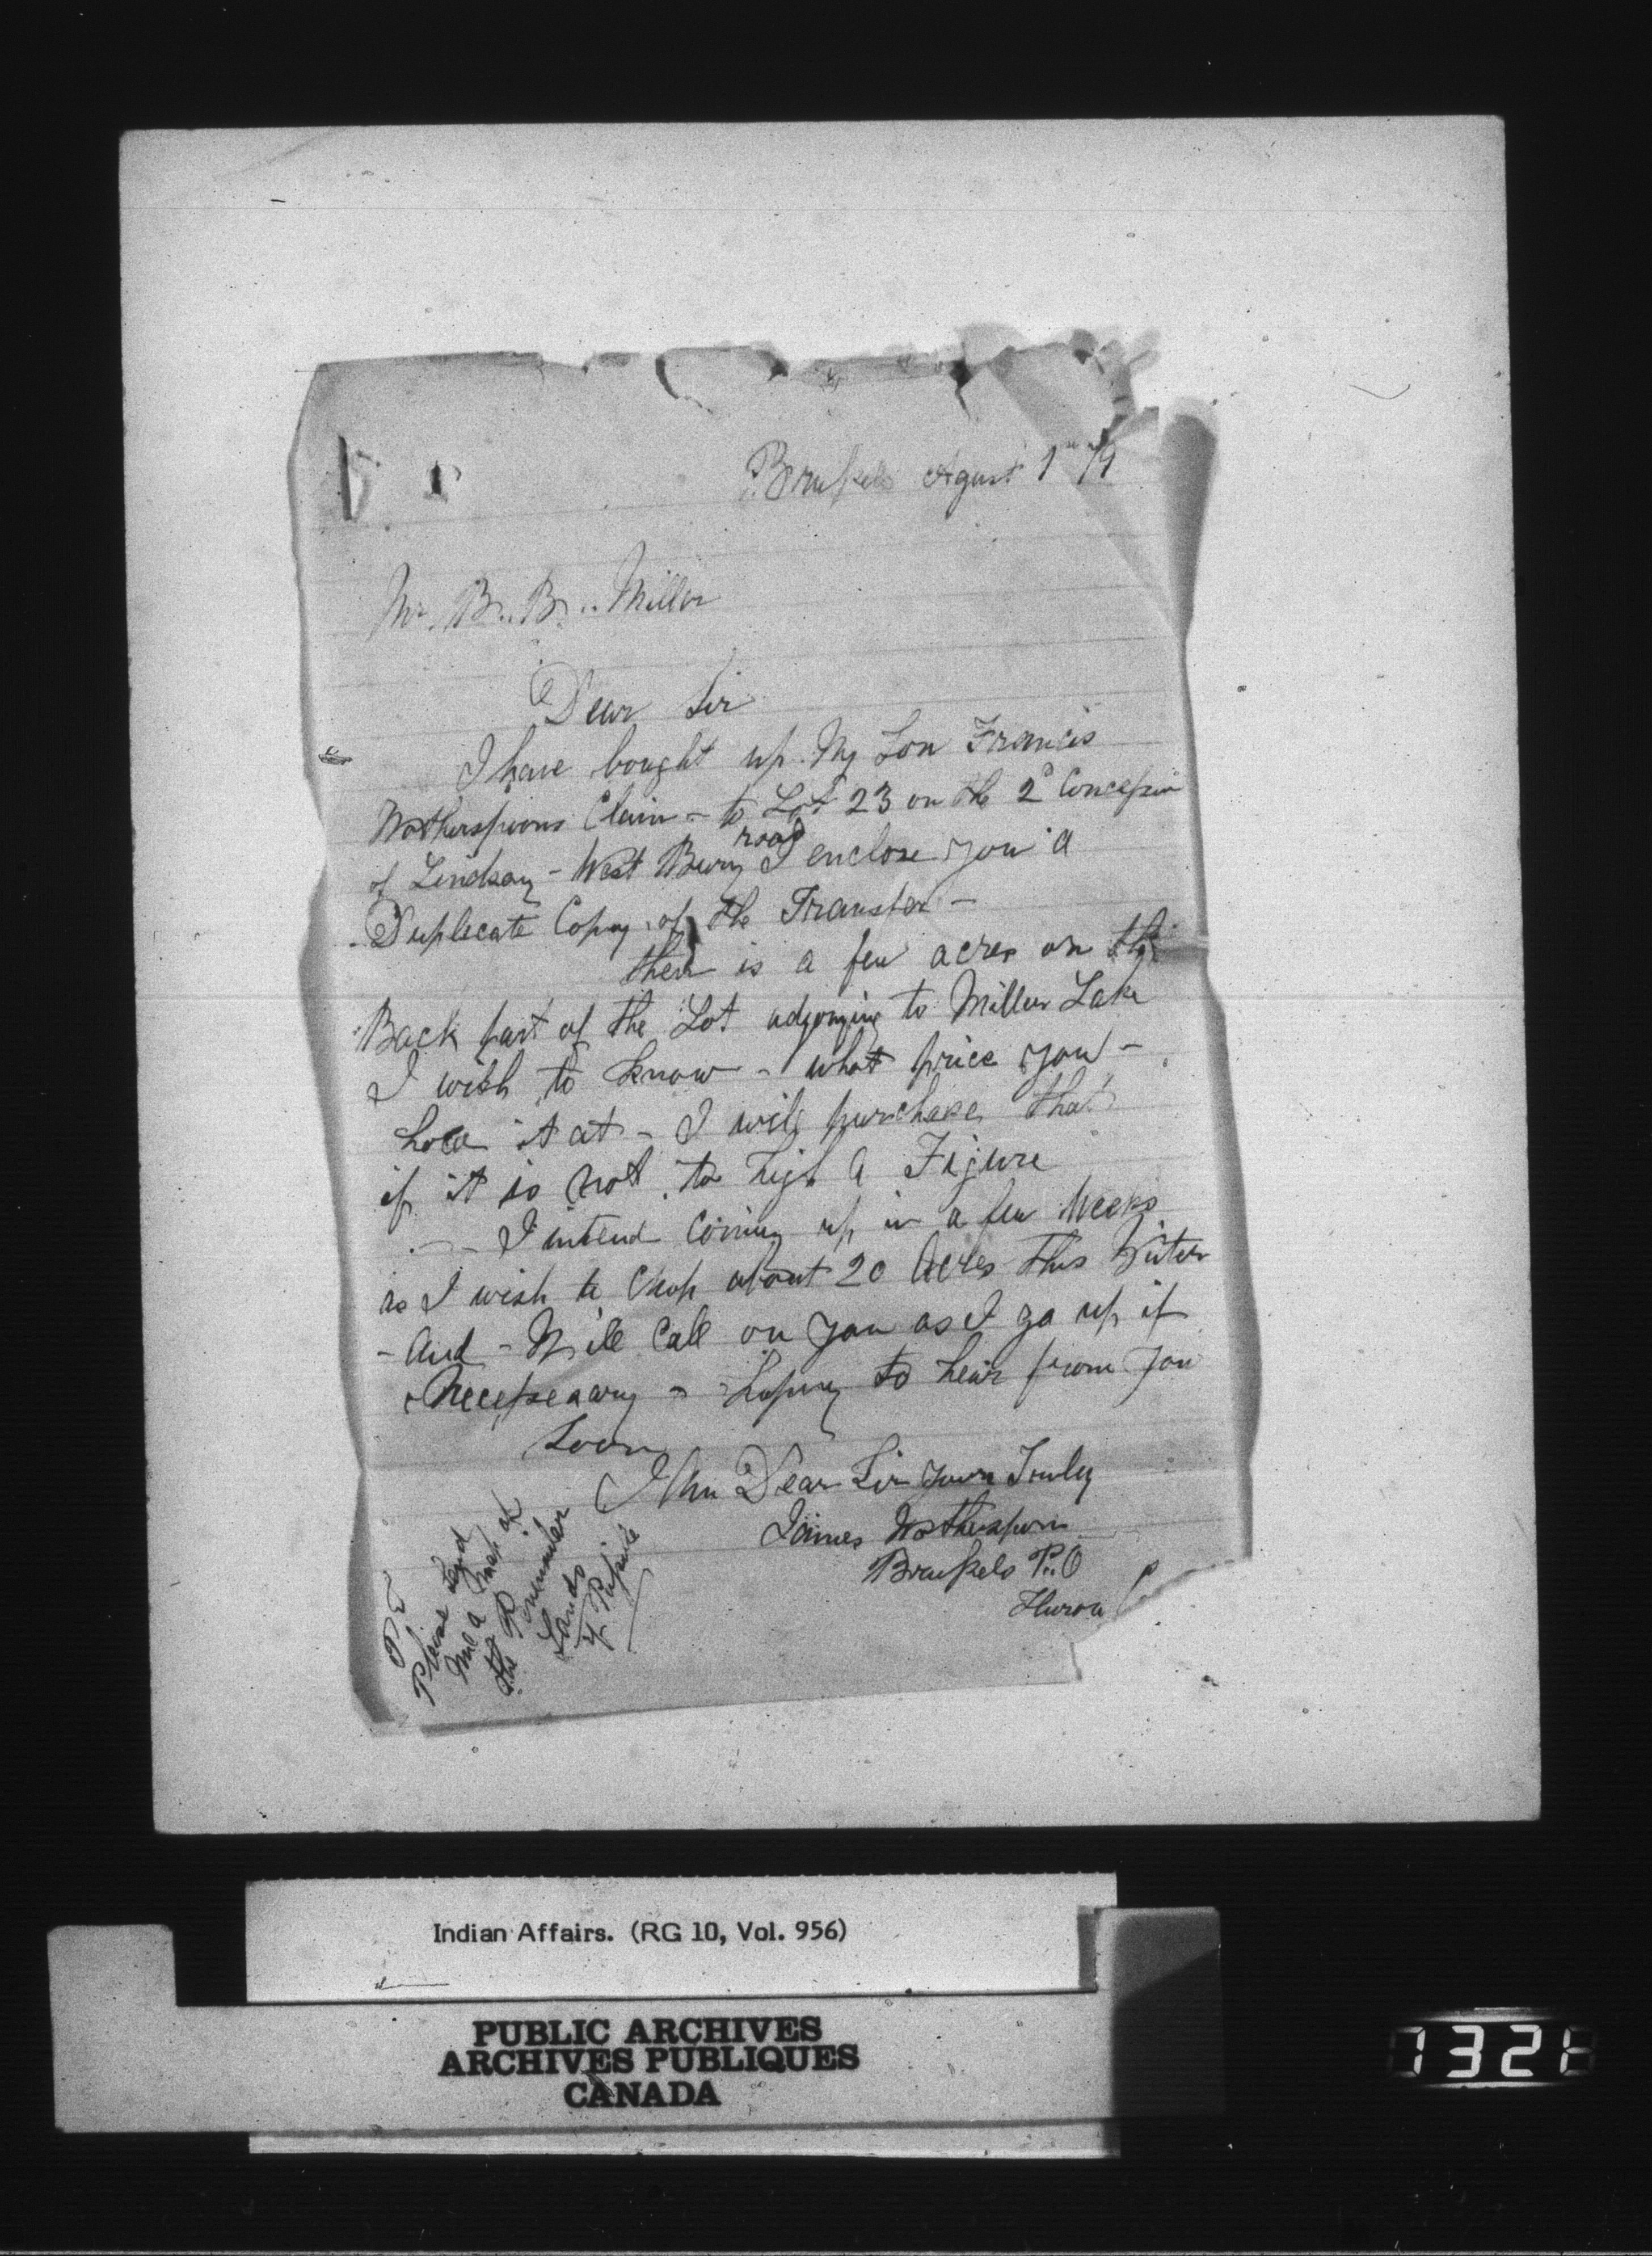 Brussels Agust 1st 79
Mr. B.. B.. Miller
Dear Sir
I have bought up My Son Francis
Wotherspoons Claim - to Lot 23 on the 2d Concession
of Lindsay - West Bury road I enclose you a
Duplicate Copy of the Transfer -
their is a few acres on the
Back part of the Lot adjonying to Miller Lake
I wish to know - what price you -
hold it at - I will purchase that
if it is not to high a Figure
- I intend Coming up in a few Weeks
as I wish to Chop about 20 Acres this Winter
- And - Will Call on you as I go up if
Necessary - hoping to hear from you
Soon
I Am Dear Sir yours Truly
James Wotherspoon
Brussels P.. O
Huron
P S
Please send
me a map of
the
Lands
if
Indian Affairs. (RG 10, Vol. 956)
PUBLIC ARCHIVES
ARCHIVES PUBLIQUES
CANADA
1321